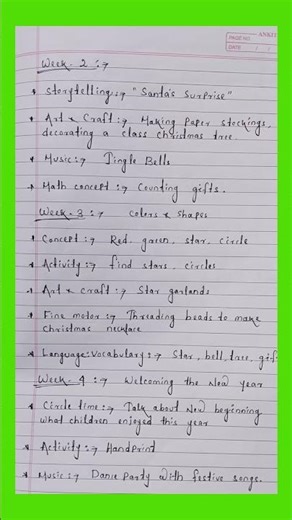 ANKIT
PAGE NO.
DATE
Week-2 :→
* Storytelling :→ "Santa's Surprise"
* Art & Craft :→ Making Paper stockings,
decorating a class Christmas tree.
* Music :→ Jingle Bells
* Math concept :→ Counting gifts.
Week-3 :→ Colors & Shapes
* Concept :→ Red, green, star, circle
* Activity :→ find stars, circles
* Art & Craft :→ Star garlands
* Fine motor :→ Threading beads to make
christmas necklace
* Language: Vocabulary :→ Star, bell, tree, gif
Week-4 :→ Welcoming the New year
* Circle time :→ Talk about New beginning
what children enjoyed this year
* Activity :→ Handprint
* Music :→ Dance Party with festive songs.